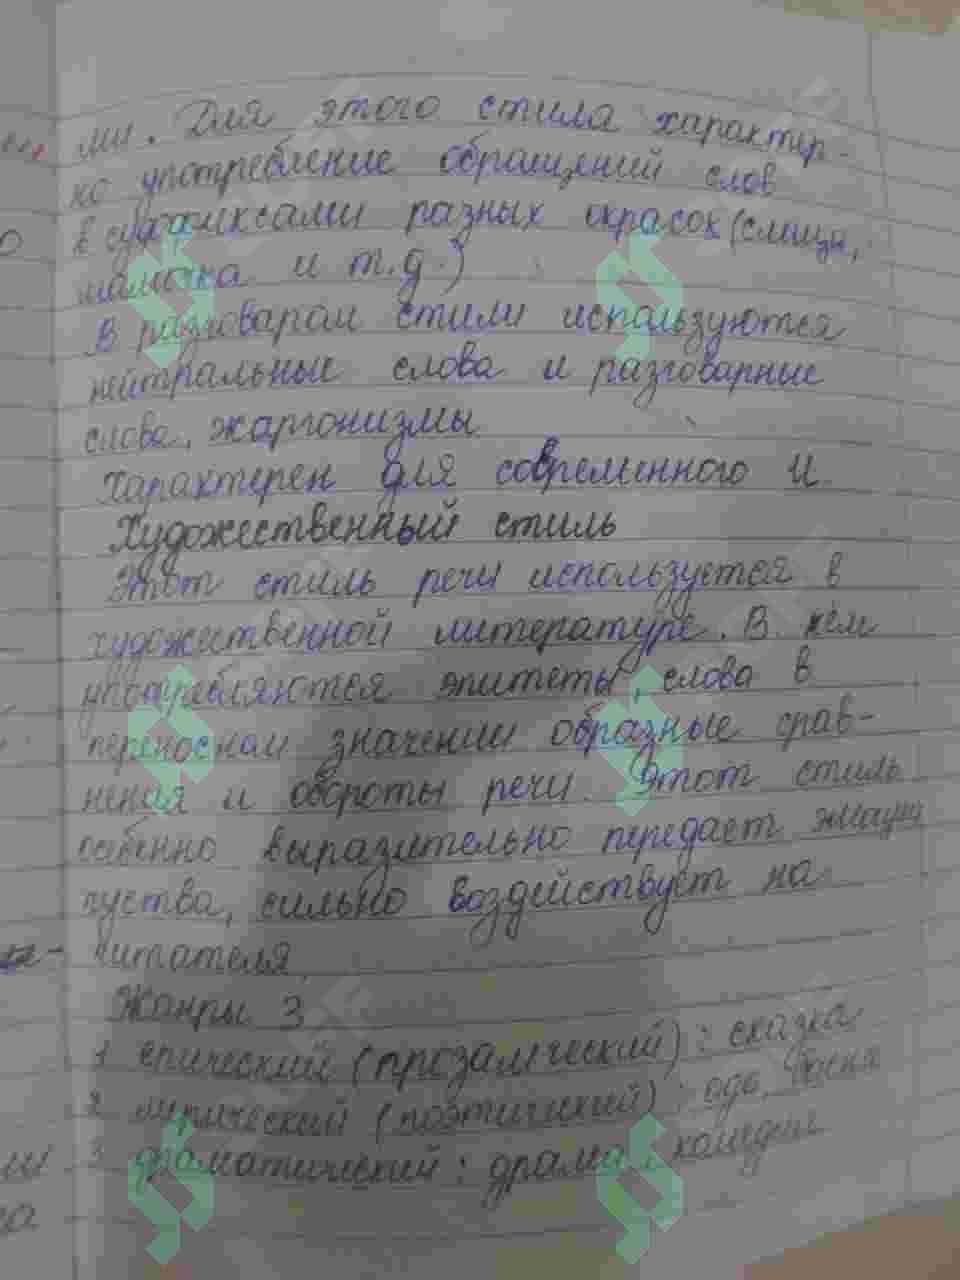 ми. Для этого стила характер-
но употребление обращений слов
в суффиксами разных окрасок (
мамочка и т.д.)
В разговарам стили используются
нейтральные слова и разговарные
слова, жаргонизмы
Характерен для современного И.
Художественный стиль
Этот стиль речи используется в
художественной литературе. В нём
употребляются эпитеты, слова в
переносном значении образные срав-
нения и обороты речи. Этот стиль
особенно выразительно передает эмации
чуства, сильно воздействует на
читателя
Жанры 3
1 епический (прозаический): сказка
2 лирический (поэтический): ода, басня
3 драматический: драма, комедии